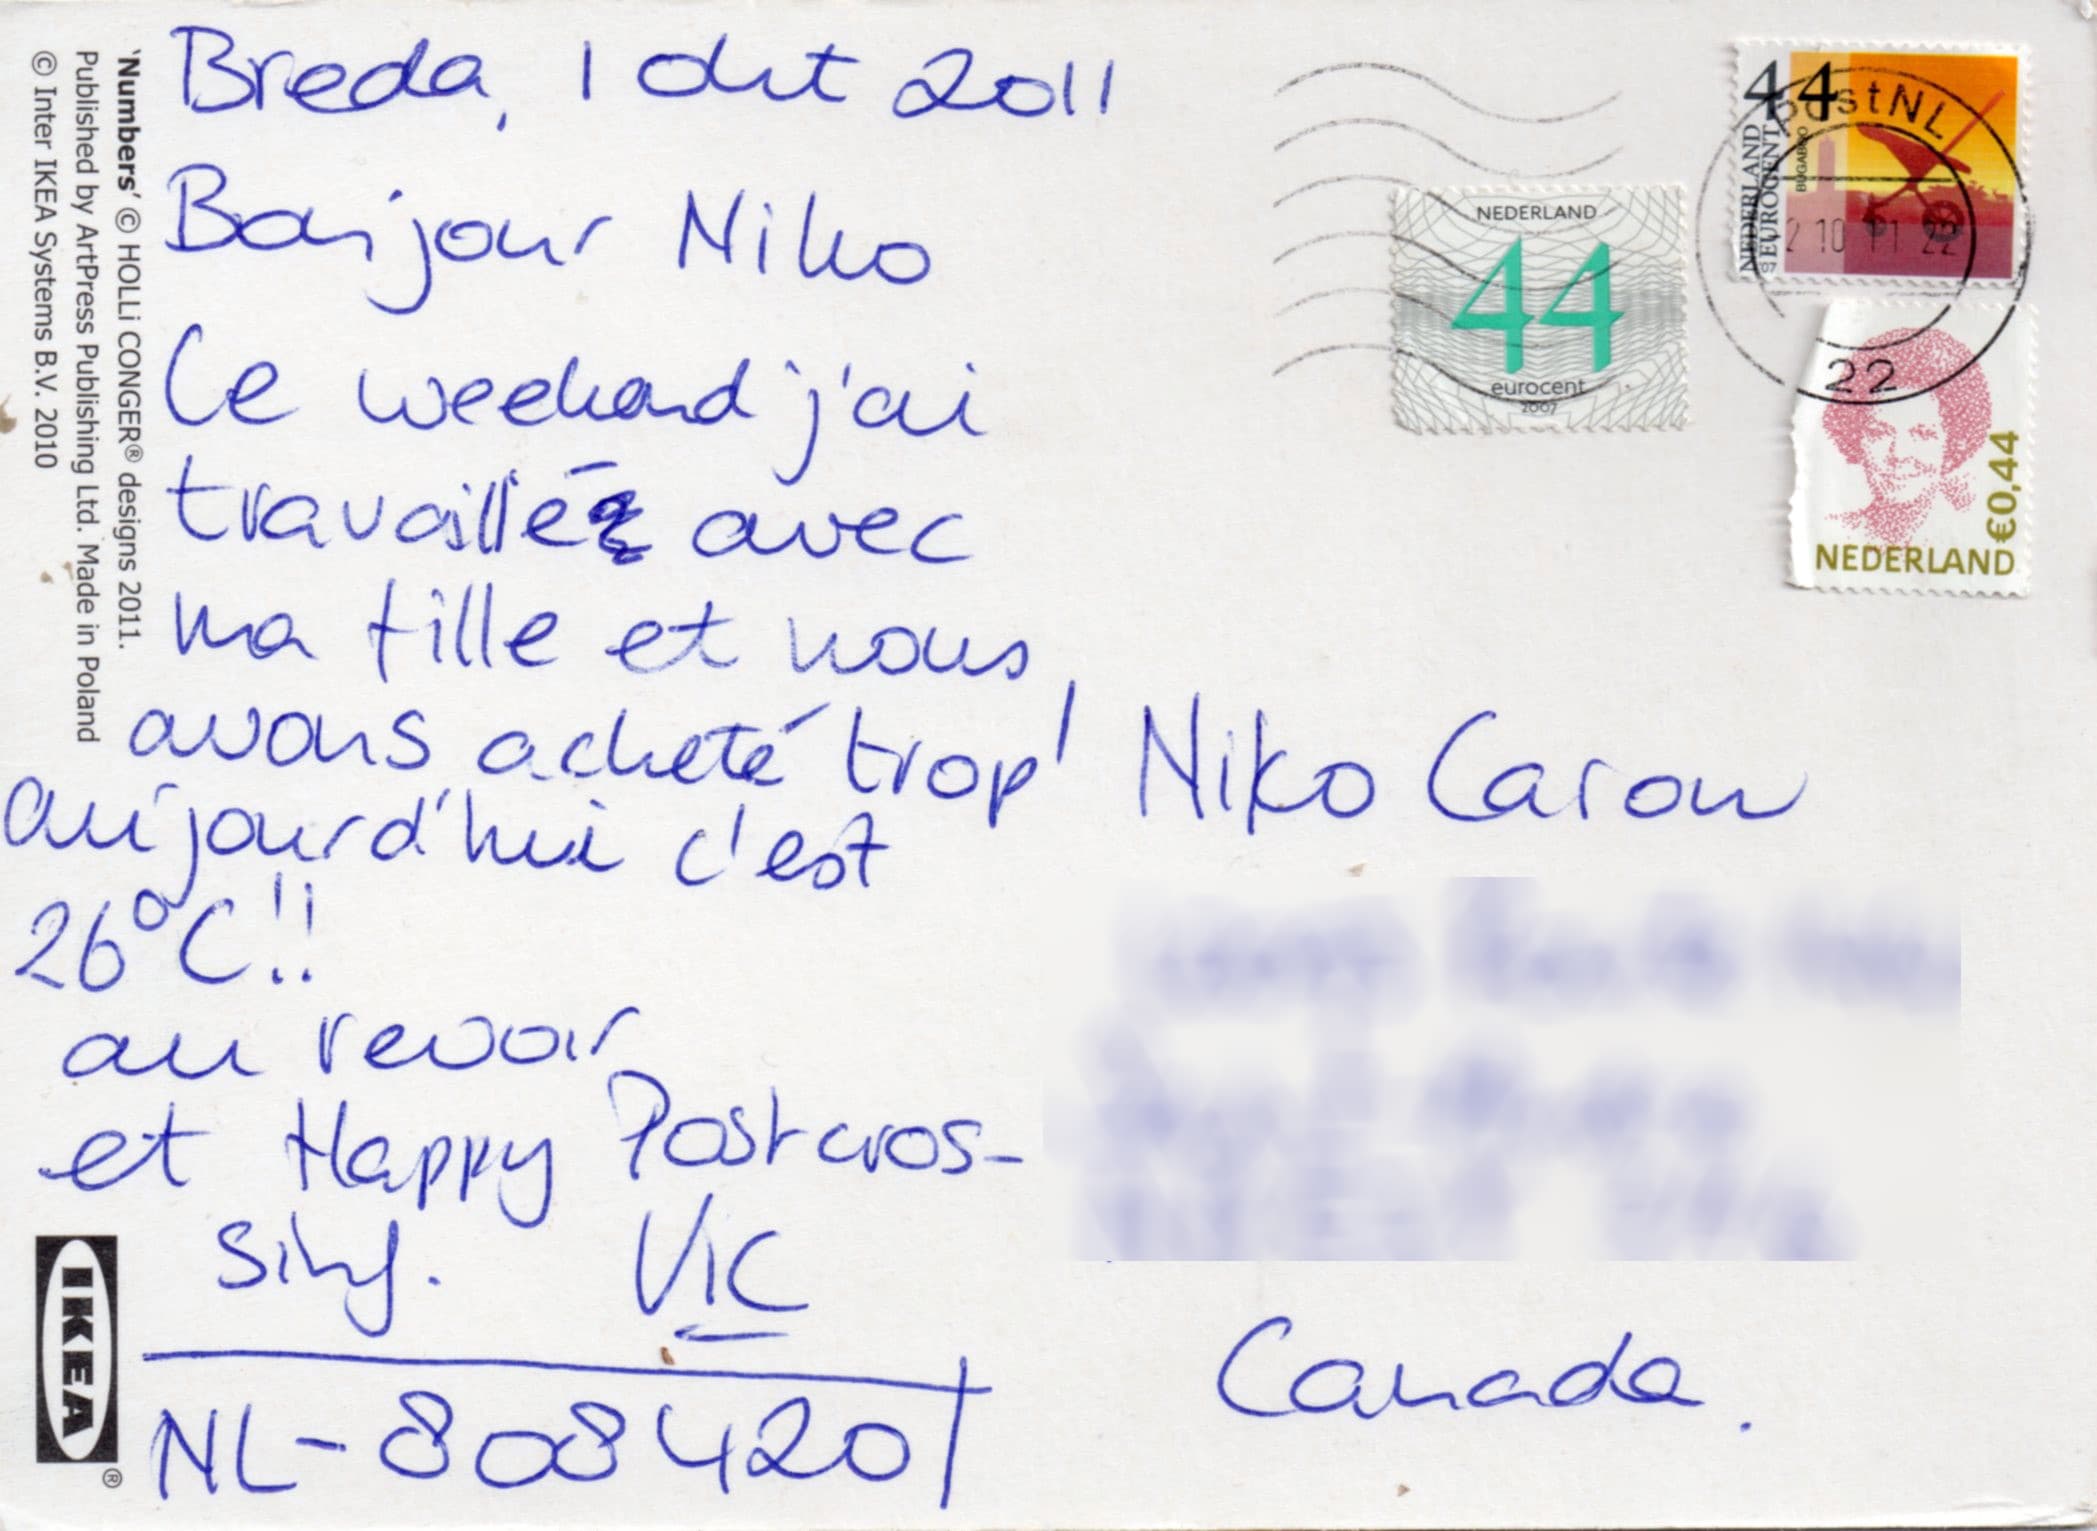 Breda, 1 okt 2011
Bonjour Niko
Ce weekend j'ai
travaillé avec
ma fille et nous
avons acheté trop!
aujourd'hui c'est
26°C!!
au revoir
et Happy Postcros-
sing. Vic
NL-808420
'Numbers' © HOLLi CONGER® designs 2011.
Published by ArtPress Publishing Ltd. Made in Poland
© Inter IKEA Systems B.V. 2010
IKEA®
NEDERLAND
44
eurocent
2007
44
EUROCENT
NEDERLAND
PostNL
2 10 11 22
22
€0,44
NEDERLAND
Niko Caron
Canada.